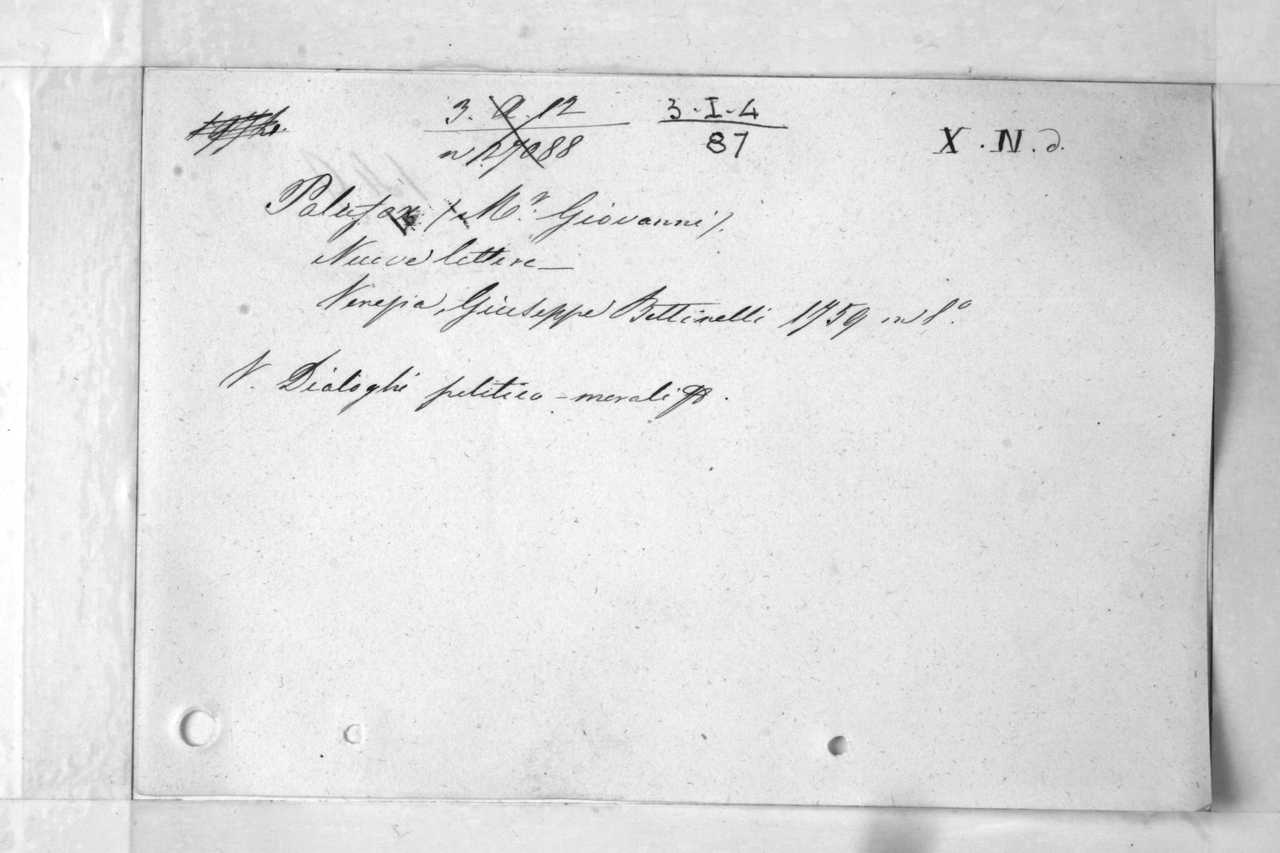 3. A. 12 3-I-4 X. N. d.
n 27088 87
Palafox (Mr. Giovanni).
Nuove lettere —
Venezia, Giuseppe Bettinelli 1759 in 8º.
V. Dialoghi politico-morali